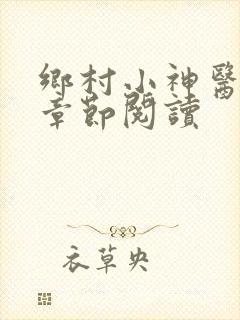 鄉村小神醫
章節閱讀
衣草央